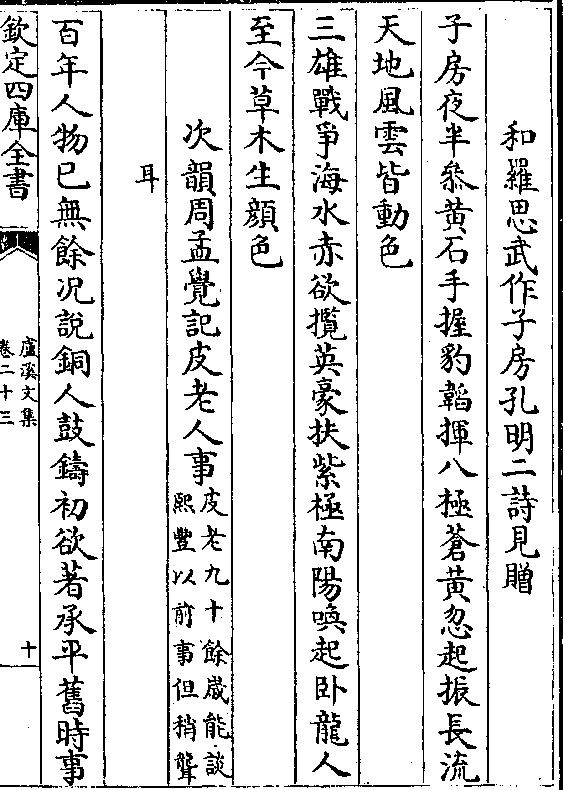 和羅思武作子房孔明二詩見贈
子房夜半叅黄石手握豹韜揮八極蒼黄忽起振長流
天地風雲皆動色
三雄戰爭海水赤欲攬英豪扶紫極南陽喚起卧龍人
至今草木生顔色
次韻周孟覺記皮老人事皮老九十餘歲能談
熙豐以前事但稍聾
耳
百年人物已無餘况說銅人鼓鑄初欲著承平舊時事
欽定四庫全書
盧溪文集
卷二十三
十